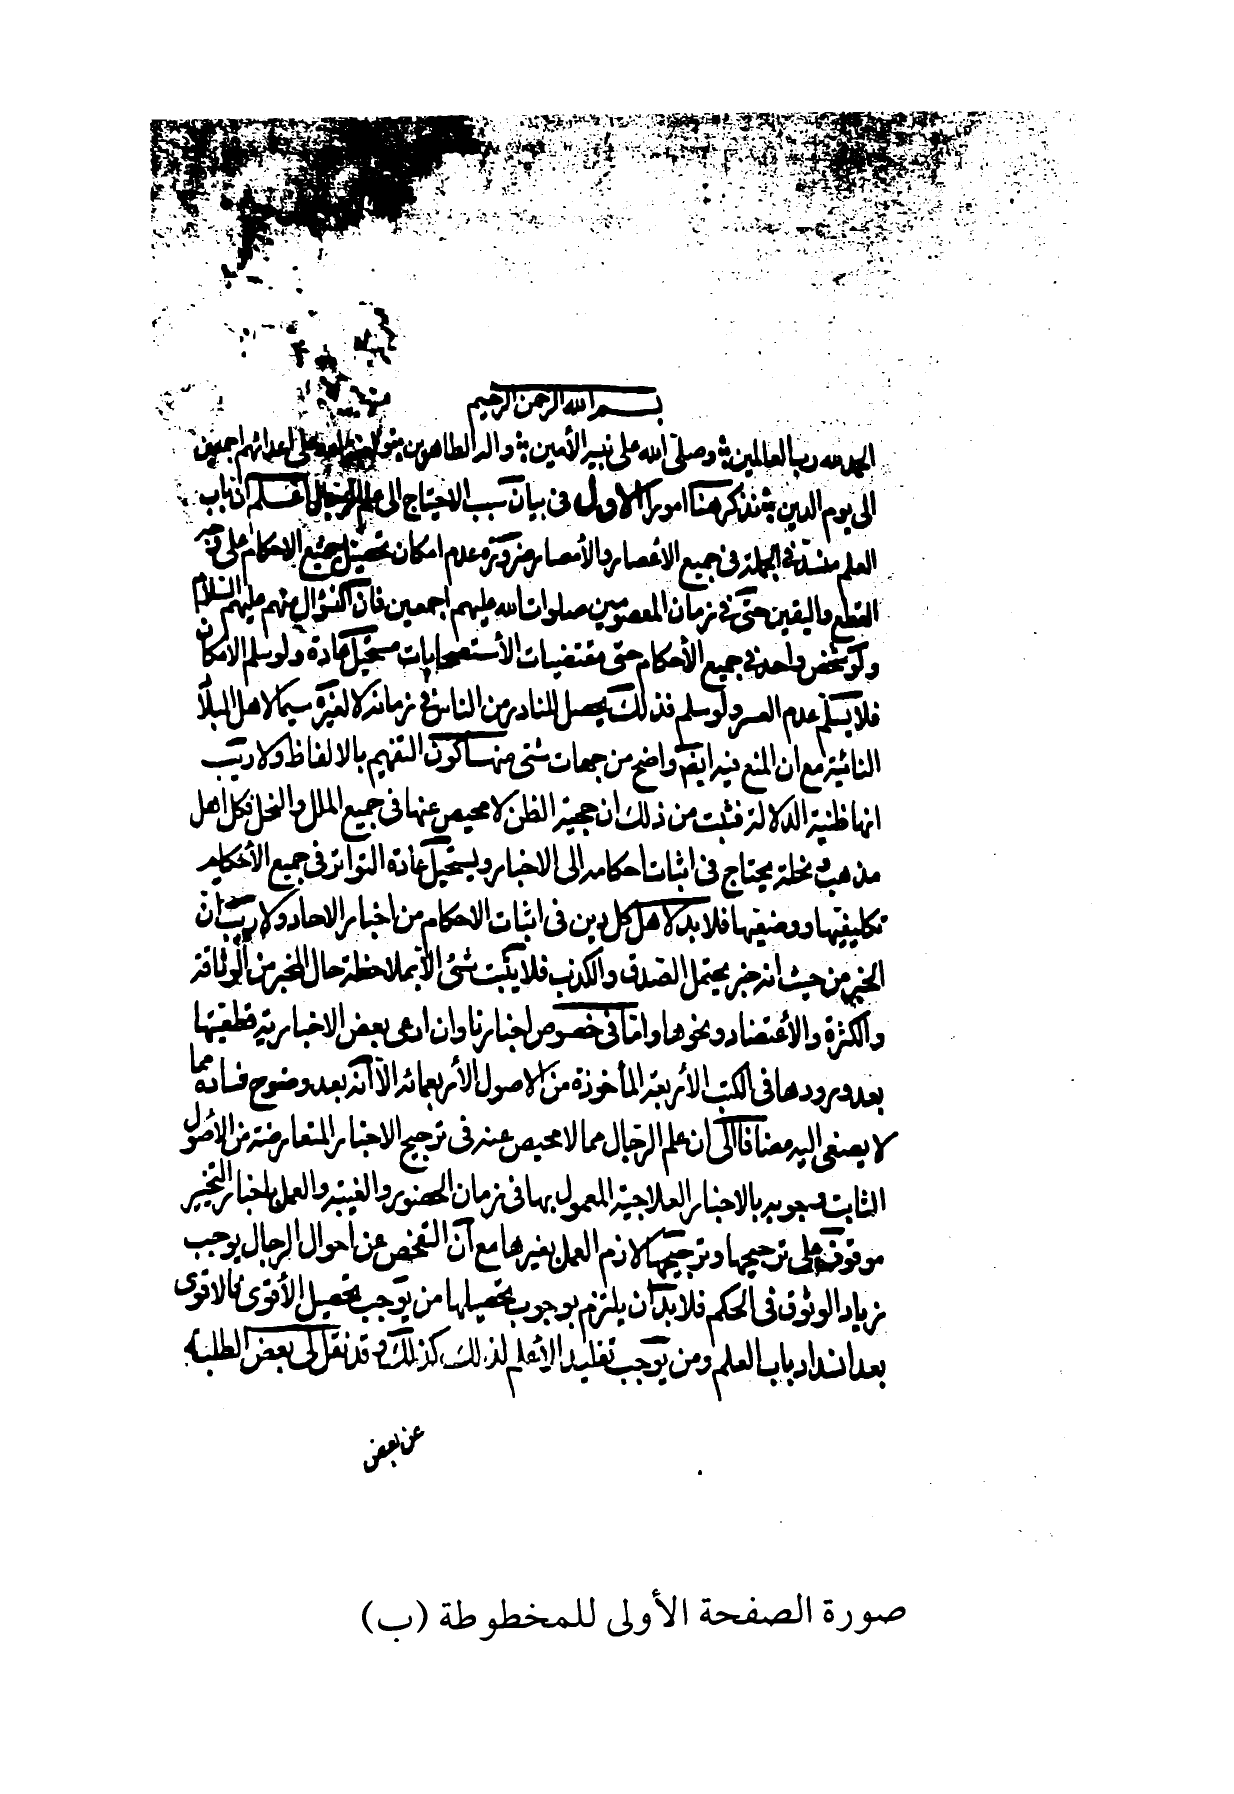 بسم الله الرحمن الرحيم
الحمد لله رب العالمين وصلى الله على نبيه الأمين وآله الطاهرين على اعدائهم اجمعين
الى يوم الدين نذكر هنا امورا الاول في بيان سبب الاحتياج الى علم الرجال اعلم ان باب
العلم منسد في الجملة في جميع الأعصار والأمصار ضرورة عدم امكان تحصيل جميع الاحكام على وجه
القطع واليقين حتى في زمان المعصومين صلوات الله عليهم اجمعين فان السؤال منهم عليهم السلام
ولو شخص واحد في جميع الأحكام حتى مقتضيات الأستصحابات مستحيل عادة ولو سلم الامكان
فلا يسلم عدم العسر ولو سلم فذلك يحصل للنادر من الناس في زمانه لا لغيره سيما لاهل البلاد
النائية مع ان المنع فيه ايضا واضح من جهات شتى منها كون التفهيم بالالفاظ ولا ريب
انها ظنية الدلالة فثبت من ذلك ان حجية الظن لا محيص عنها في جميع الملل والنحل فكل اهل
مذهب ونحلة يحتاج في اثبات احكامه الى الاخبار ويستحيل عادة التواتر في جميع الأحكام
تكليفيتها ووضعيتها فلا بد لاهل كل دين في اثبات الاحكام من اخبار الاحاد ولا ريب ان
الخبر من حيث انه خبر يحتمل الصدق والكذب فلا يثبت شئ الا بملاحظة حال المخبر من الوثاقة
والكثرة والأعتضاد ونحوها واما في خصوص اخبارنا وان ادعى بعض الاخبارية قطعيتها
بعد ورودها في الكتب الأربعة المأخوذة من الاصول الأربعمائة الا انه بعد وضوح فساده مما
لا يصغى اليه مضافا الى ان علم الرجال مما لا محيص عنه في ترجيح الاخبار المتعارضة من الأصول
الثابت وجوبه بالاخبار العلاجية المعمول بها في زمان الحضور والغيبة والعمل باخبار التخيير
موقوف على ترجيحها وترجيحها لازم العمل بغيرها مع ان التفحص عن احوال الرجال يوجب
زياد الوثوق في الحكم فلا بد ان يلتزم بوجوب تحصيلها من يوجب تحصيل الأقوى فالاقوى
بعد انسداد باب العلم ومن يوجب تقليد الأعلم لذلك كذلك وقد نقل لى بعض الطلبة
عن بعض
صورة الصفحة الأولى للمخطوطة (ب)